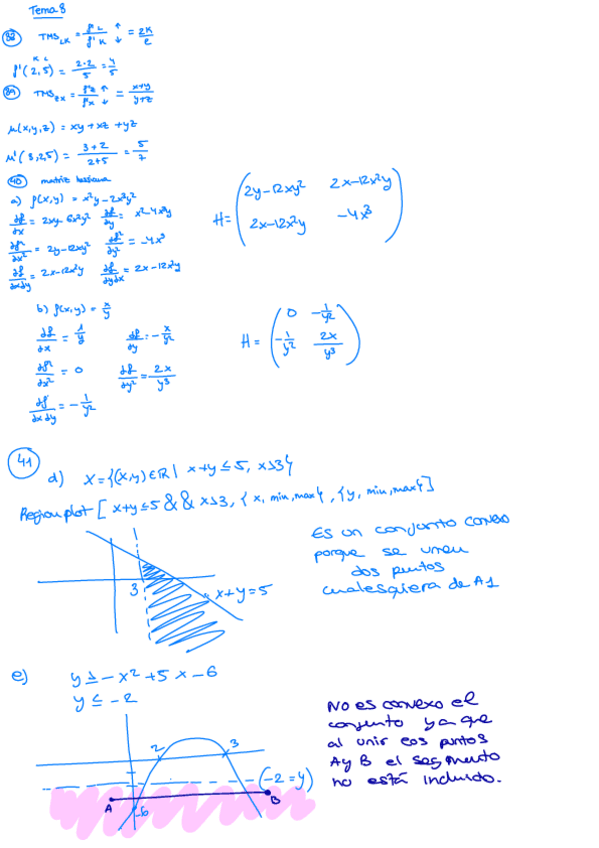 Tema 8
38 TMS LK = f'L ↑ / f'K ↓ = 2K / L
K L
f'(2,5) = 2·2 / 5 = 4/5
39 TMS zx = f'z ↑ / f'x ↓ = x+y / y+z
u(x,y,z) = xy + xz + yz
u'(3,2,5) = 3+2 / 2+5 = 5/7
40 matriz hessiana
a) f(x,y) = x²y - 2x³y²
∂f/∂x = 2xy - 6x²y² ∂f/∂y = x² - 4x³y
∂f²/∂x² = 2y - 12xy² ∂f²/∂y² = -4x³
∂f/∂x∂y = 2x - 12x²y ∂f/∂y∂x = 2x - 12x²y
H = ( 2y-12xy² 2x-12x²y
2x-12x²y -4x³ )
b) f(x,y) = x/y
∂f/∂x = 1/y ∂f/∂y = - x/y²
∂f²/∂x² = 0 ∂f/∂y² = 2x/y³
∂f/∂x∂y = - 1/y²
H = ( 0 -1/y²
-1/y² 2x/y³ )
41
d) X = {(x,y) ∈ ℝ | x+y ≤ 5, x>3}
Region plot [ x+y ≤ 5 && x>3, {x, min, max}, {y, min, max}]
3
x+y = 5
Es un conjunto convexo
porque se unen
dos puntos
cualesquiera de A1
e) y ≥ -x² + 5x - 6
y ≤ -2
2
3
(-2 = y)
A
B
-6
No es convexo el
conjunto ya que
al unir los puntos
A y B el segmento
no está incluido.